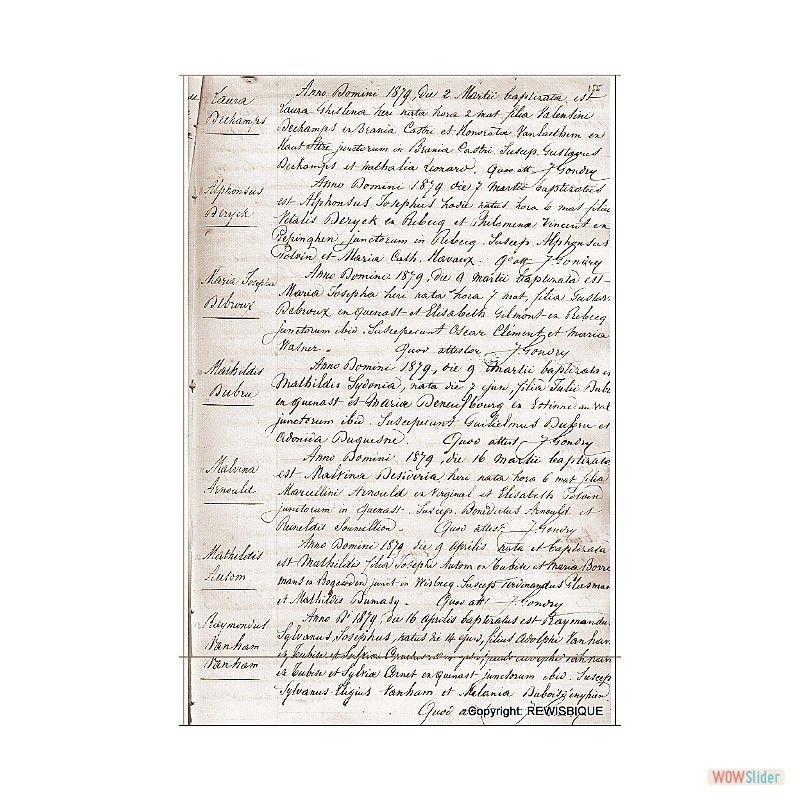 175
Laura
Dechamps
Anno Domini 1879, die 2 Martii baptizata est
Laura Ghislena heri nata hora 2 mat filia Valentini
Dechamps ex Brania Castri et Honoratæ Vanlaethem ex
Haut Ittre junctorum in Brania Castri. Suscep. Gustavus
Dechamps et Nathalia Lionard. Quod att. J. Gondry
Alphonsus
Deryck
Anno Domini 1879 die 7 Martii baptizatus
est Alphonsus Josephus hodie natus hora 6 mat. filius
Vitalis Deryck ex Rebecq et Philomenæ Vincent ex
Pepinghen junctorum in Rebecq. Suscep. Alphonsus
Polvin et Maria Cath. Havaux. Q. att J. Gondry
Maria Josepha
Debroux
Anno Domini 1879, die 9 martii baptizata est
Maria Josepha heri nata hora 7 mat, filia Gustavi
Debroux ex Quenast et Elisabeth Gilmont ex Rebecq
junctorum ibid. Susceperunt Oscar Clément et Maria
Wasner. Quod attestor J. Gondry
Mathildis
Dubru
Anno Domini 1879, die 9 Martii baptizata est
Mathildis Sydonia, nata die 7 ejusd, filia Julii Dubru
ex Quenast et Mariæ Deneufbourg ex Estinne au Val
junctorum ibid. Susceperunt Guilielmus Dubru et
Ordonica Duquesne. Quod attest J. Gondry
Malvina
Arnould
Anno Domini 1879, die 16 Martii baptizata
est Malvina Desideria heri nata hora 6 mat filia
Marcellini Arnould ex Virginal et Elisabeth Polvin
junctorum in Quenast. Suscep. Benedictus Arnould et
Reineldis Soumillion. Quod attest J. Gondry
Mathildis
Autom
Anno Domini 1879 die 9 Aprilis nata et baptizata
est Mathildis filia Josephi Autom ex Tubise et Maria Borre
mans ex Bogaerden junct in Wisbecq. Suscep Ferdinandus Hasman
et Mathildis Dumasy. Quod att J. Gondry
Raymondus
Vanham
Anno Di 1879, die 16 Aprilis baptizatus est Raymandus
Sylvanus Josephus, natus die 14 ejusd, filius Adolphi Vanham
Vanham
ex Tubise et Sylviæ Cornet ex Quenast junctorum ibid Suscep
Sylvanus Eligius Vanham et Melania Dubois Enghien
Quod
Copyright: REWISBIQUE
WOWSlider